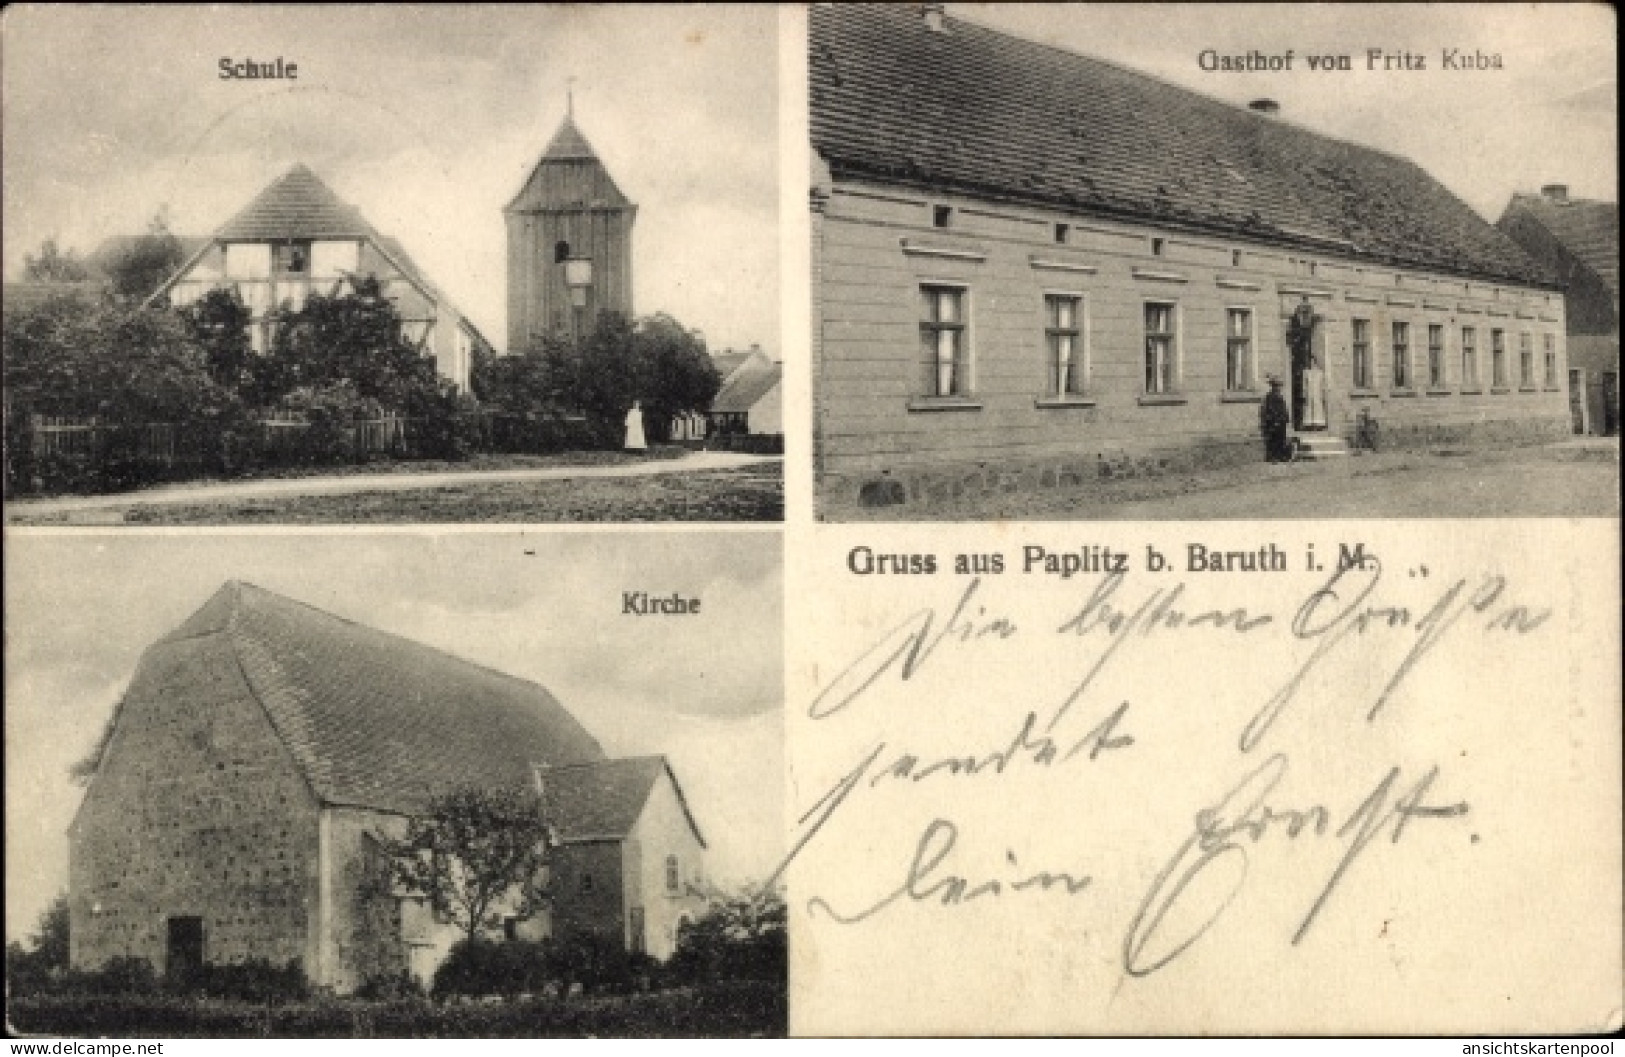 Schule
Gasthof von Fritz Kuba
Kirche
Gruss aus Paplitz b. Baruth i. M.
Die besten Grüße
sendet
Dein Ernst.
www.delcampe.net
ansichtskartenpool